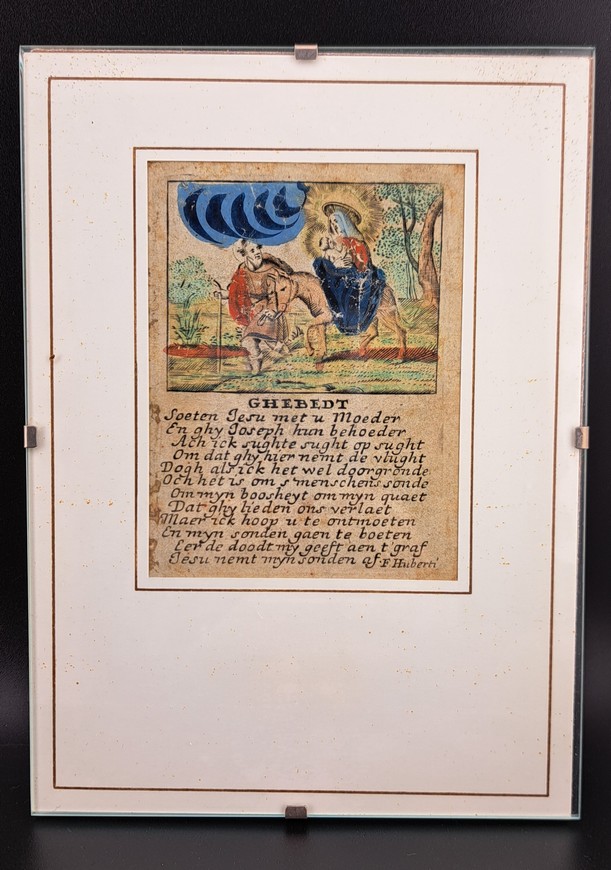 GHEBEDT
Soeten Jesu met u Moeder
En ghy Joseph hun behoeder
Ach ick sughte sught op sught
Om dat ghy hier nemt de vlught
Dogh als ick het wel doorgronde
Och het is om s'menschens sonde
Om myn boosheyt om myn quaet
Dat ghy lieden ons verlaet
Maer ick hoop u te ontmoeten
En myn sonden gaen te boeten
Eer de doodt my geeft aen t graf
Jesu nemt myn sonden af F Huberti